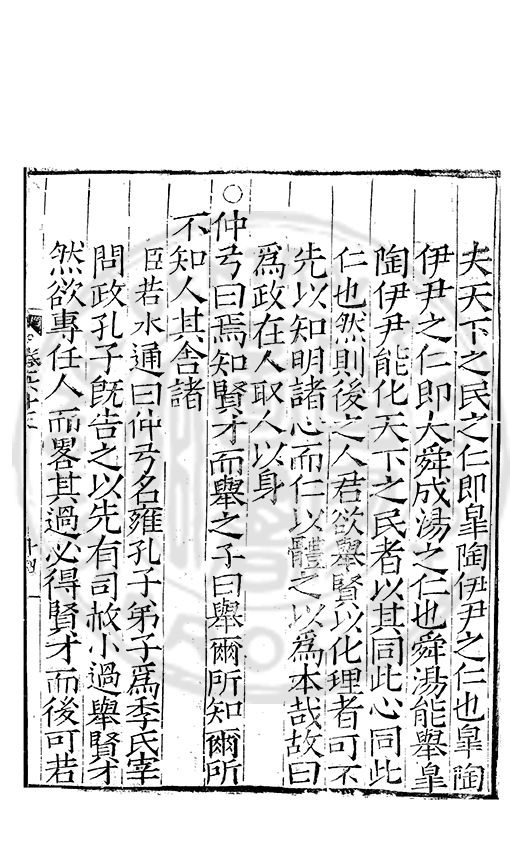 夫天下之民之仁即臯陶伊尹之仁也臯陶
伊尹之仁即大舜成湯之仁也舜湯能舉臯
陶伊尹能化天下之民者以其同此心同此
仁也然則後之人君欲舉賢以化理者可不
先以知明諸心而仁以體之以爲本哉故曰
爲政在人取人以身
○仲弓曰焉知賢才而舉之子曰舉爾所知爾所
不知人其舍諸
臣若水通曰仲弓名雍孔子弟子爲季氏宰
問政孔子旣告之以先有司赦小過舉賢才
然欲專任人而畧其過必得賢才而後可若